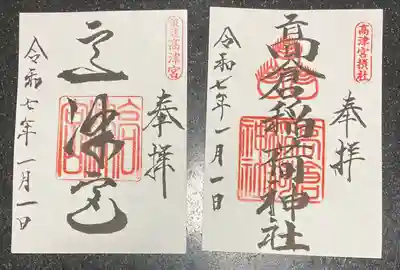 奉拝
高津宮
令和七年一月一日
高津宮摂社
奉拝
高倉稲荷神社
令和七年一月一日